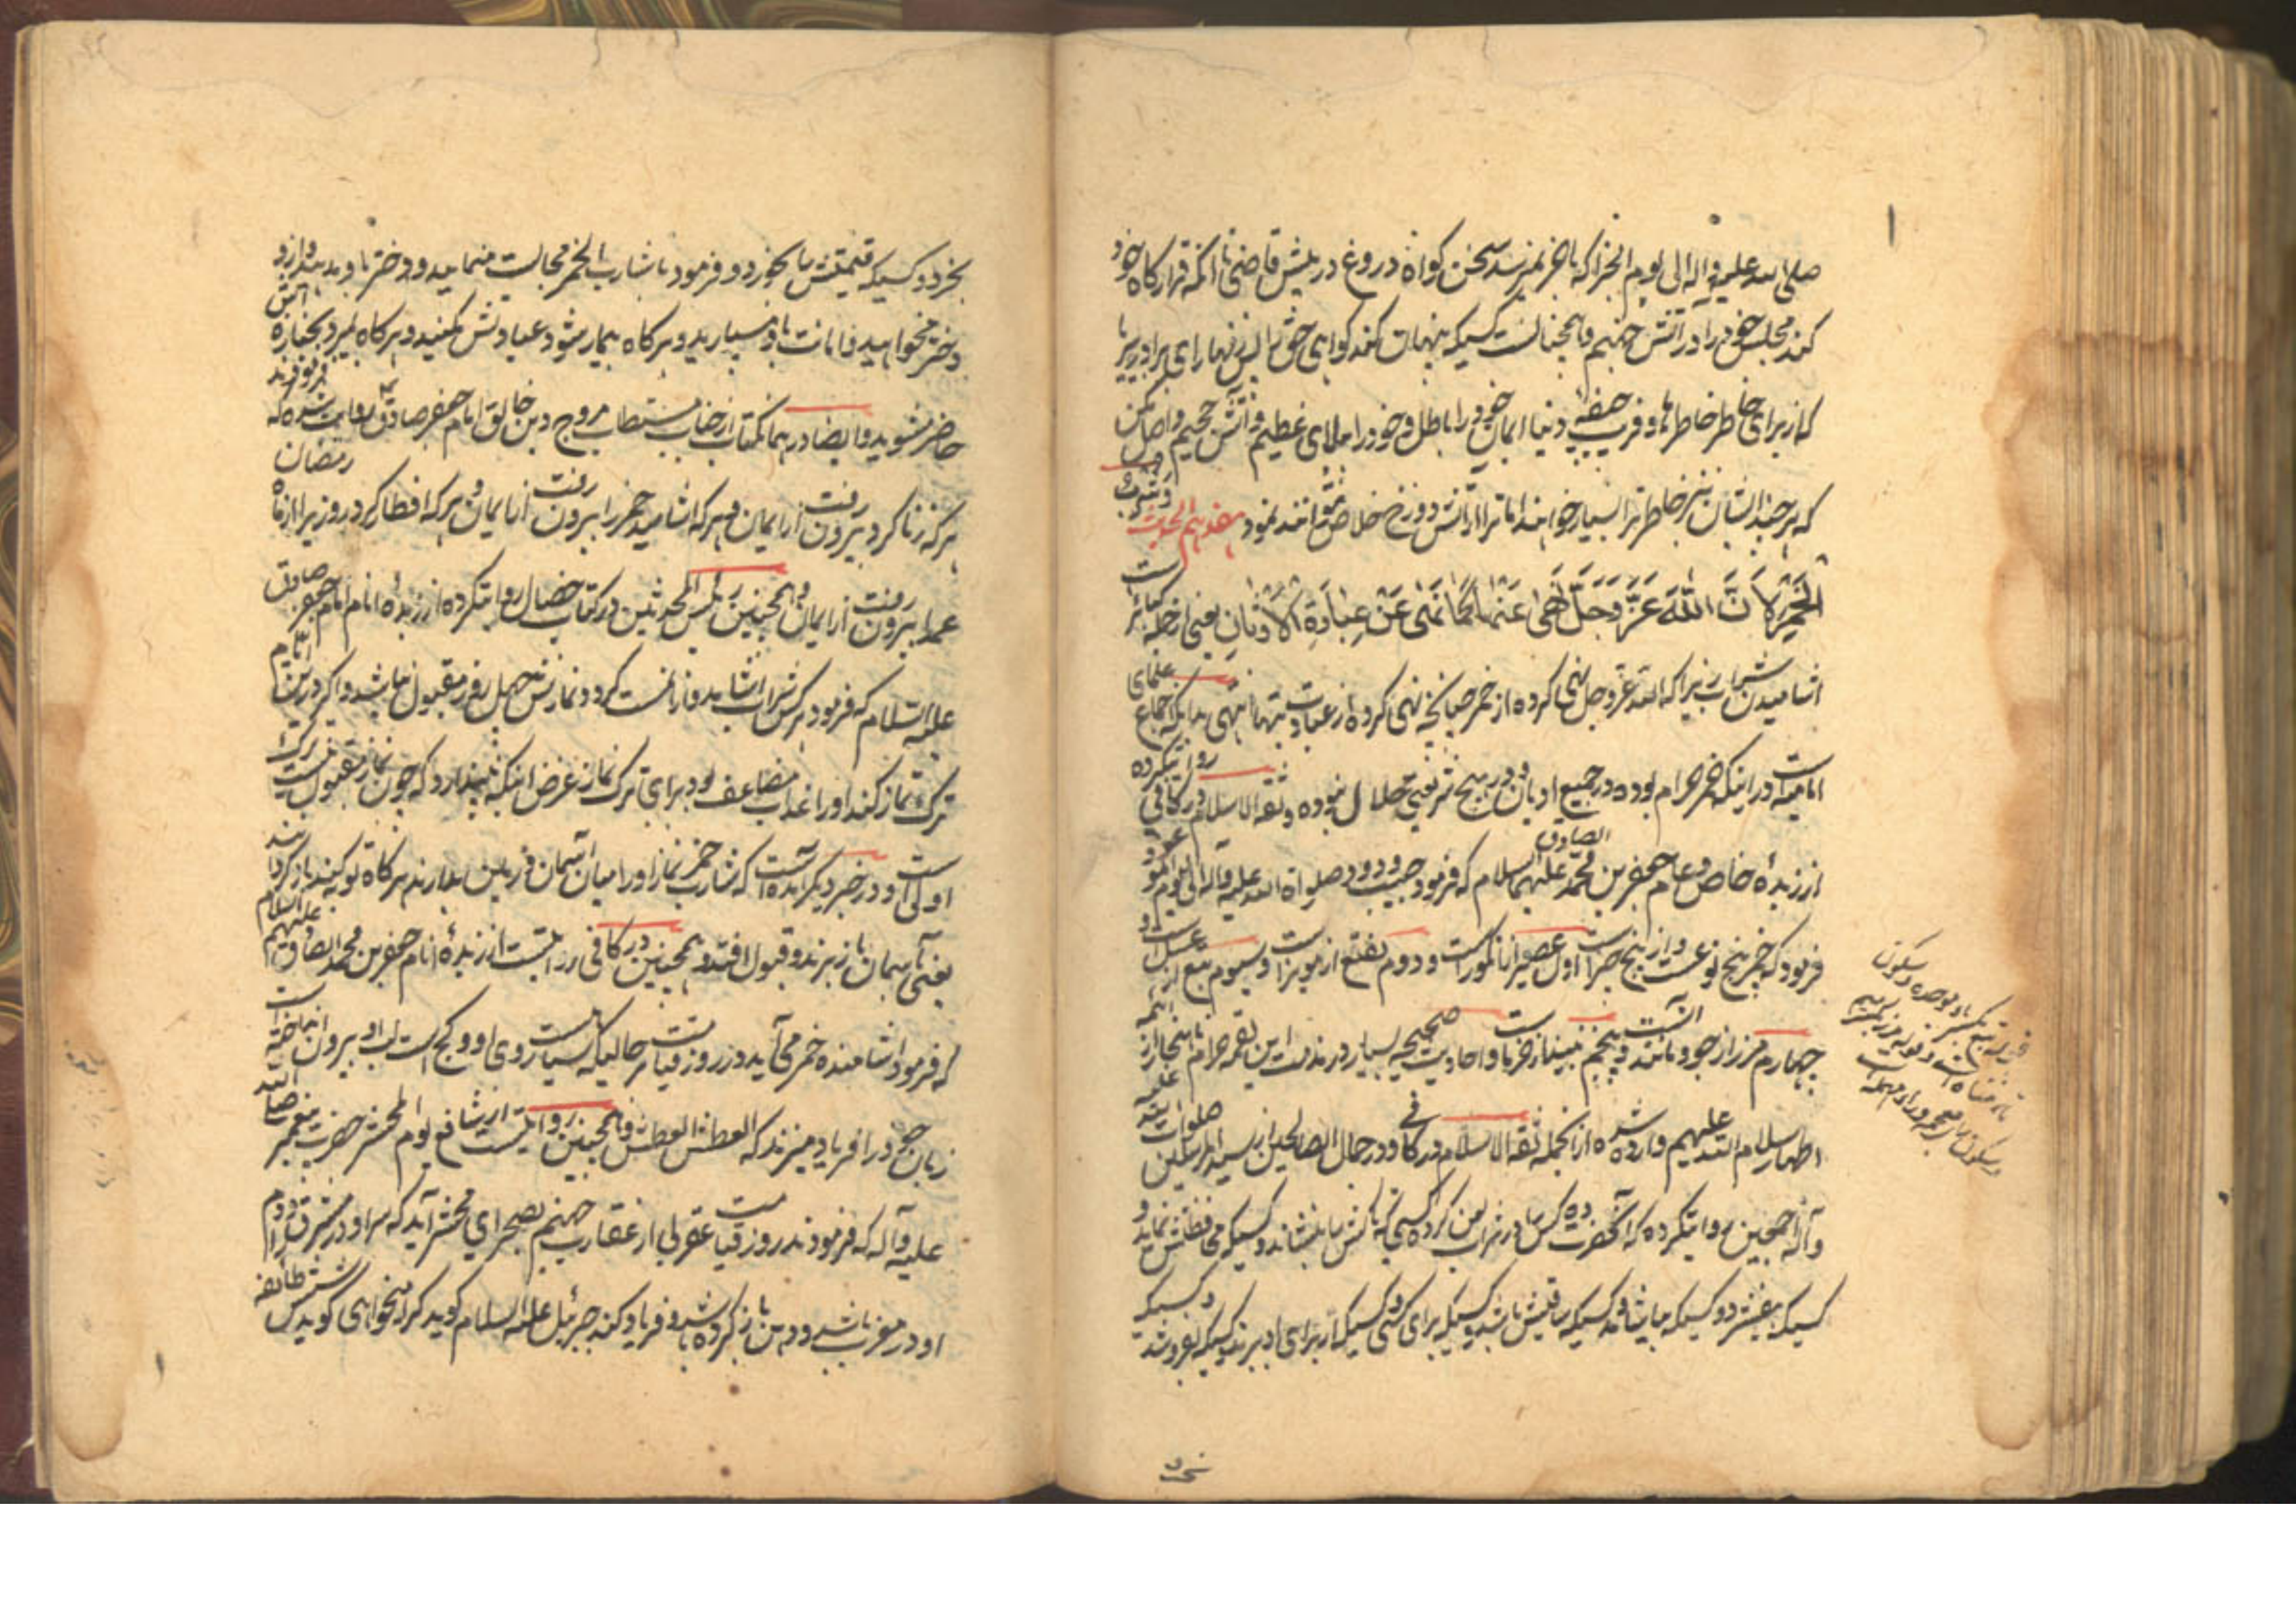 صلی الله علیه و اله الی یوم الجزا که باخر نمیرسد سخن کواه دروغ در پیش قاضی تا انکه قرارکاه خود
کند مجلس خود را در اتش جهنم و همچنانست کسیکه پنهان کند کواهی حق را پس زنهار ای برادر
که از برای خاطر خاطرها و فریب جیفه دنیا ایمان خود را باطل و خود را مبتلای عظیم و آتش جحیم واصل مکن
که هر چند ایشان نیز خاطر ترا بسیار خواهند اما ترا از آتش دوزخ خلاص نتوانند نمود هفدهم الحدیث و شرب
الخمر کان الله عز وجل نهی عنها کما نهی عن عبادة الاوثان یعنی از جمله کبائر است
اشامیدن شرابست زیرا که الله عز و جل نهی کرده از خمر چنانچه نهی کرده از عبادت بتها انتهی بدانکه اجماع علمای
امامیه است در اینکه خمر حرام بوده در جمیع ادیان و در هیچ شریعتی حلال نبوده و ثقة الاسلام در کافی روایتکرده
از زبدهٔ خاص و عام جعفر بن محمد الصادق علیهما السلام که فرمود حبیب ودود صلواة الله علیه و آله الی الیوم الموعود
فرمود که خمر پنج نوعست و از پنج چیز است اول عصیر از انکور است و دوم نقیع از مویز است و سیوم بتع از عسل است و
چهارم مزر از جو و مانند آنست و پنجم نبیذ از خرما و احادیث صحیحه بسیار در مذمت این بقعه حرام از ائمه
اطهار سلام الله علیهم وارد شده از انجمله ثقة الاسلام در کافی و در جمال الصالحین از سید المرسلین صلوات الله علیه
و آله اجمعین روایتکرده که آنحضرت ده کس را در شراب لعن کرده کسی که تاکش را بنشاند و کسیکه محافظتش نماید و
کسیکه بفشرد و کسیکه بیاشامد و کسیکه ساقیش باشد و کسیکه برای کسی و کسیکه از برای او برند و کسیکه بفروشد و کسیکه
بخرد و کسیکه قیمتش را بخورد و فرمود با شارب الخمر مجالست منمایید و دختر باو مدهید و از او
دختر مخواهید و امانت باو مسپارید و هرکاه بیمار شود عیادتش مکنید و هرکاه بمیرد بجنازه اش
حاضر مشوید و ایضا در همانکتاب از جناب مستطاب مروج دین خالق امام جعفر صادق روایت شده که
هر که زنا کرد بیرون رفت از ایمان و هر که اشامید خمر را بیرون رفت از ایمان و هر که افطار کرد روزی را از ماه رمضان
عمدا بیرون رفت از ایمان و همچنین رئیس المحدثین در کتاب خصال روایتکرده از زبدهٔ انام امام جعفر صادق
علیه السلام که فرمود هر کس شراب اشامید و از آن مست کردد نمازش چهل روز مقبول نباشد و اکر درین ایام
ترک نماز کند او را عذاب مضاعف بود برای ترک نماز غرض اینکه نپندارد که چون نماز مقبول نیست ترک
اولی است و در خبر دیکر آمده است که شارب خمر نماز او را میان آسمان و زمین بدارند هرکاه توبه کند باز کردانند
یعنی بآسمان باز برند و قبول افتد و همچنین در کافی روایتست از زبدهٔ انام جعفر بن محمد الصادق علیهم السلام
که فرمود اشامنده خمر می آید در روز قیامت حالیکه سیاست روی او و کج است لب او بیرون انداخته است
زبان خود را فریاد میزند که العطش العطش و همچنین روایتست از شافع یوم المحشر حضرت پیغمبر صلی الله
علیه و آله که فرمودند روز قیامت عقربی از عقارب جهنم بصحرای محشر آید که سر او در مشرق و دم
او در مغرب باشد و دهن باز کرده باشد و فریاد کند جبرئیل علیه السلام کوید کرا میخواهی کوید شش طائفه